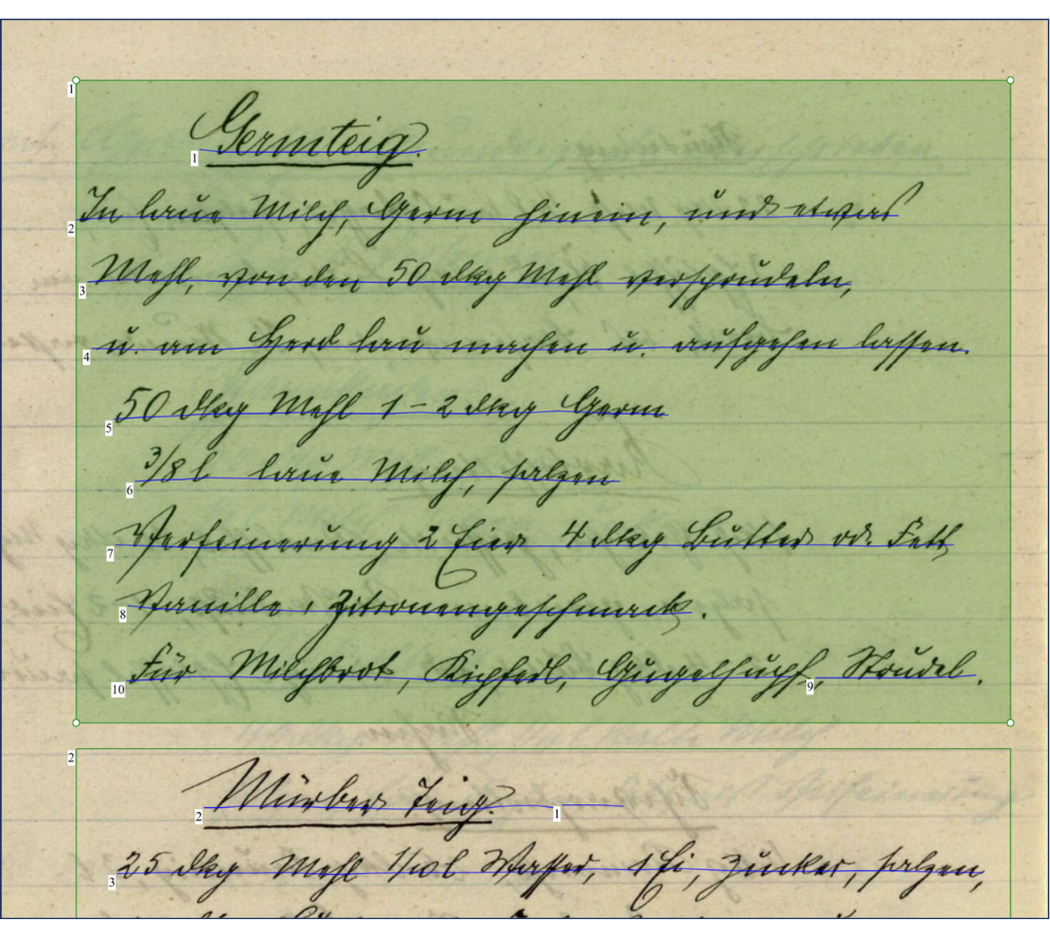 Germteig.
In laue Milch, Germ hinein, und etwas
Mehl, von den 50 dkg Mehl versprudeln,
u. am Herd lau machen u. aufgehen lassen.
50 dkg Mehl 1-2 dkg Germ
3/8 l laue Milch, salzen
Verfeinerung 2 Eier 4 dkg Butter od. Fett
Vanille, Zitronengeschmack.
Für Milchbrot, Kipferl, Gugelhupf, Strudel.
Mürber Teig.
25 dkg Mehl 1/10 l Wasser, 1 Ei, Zucker, salzen,